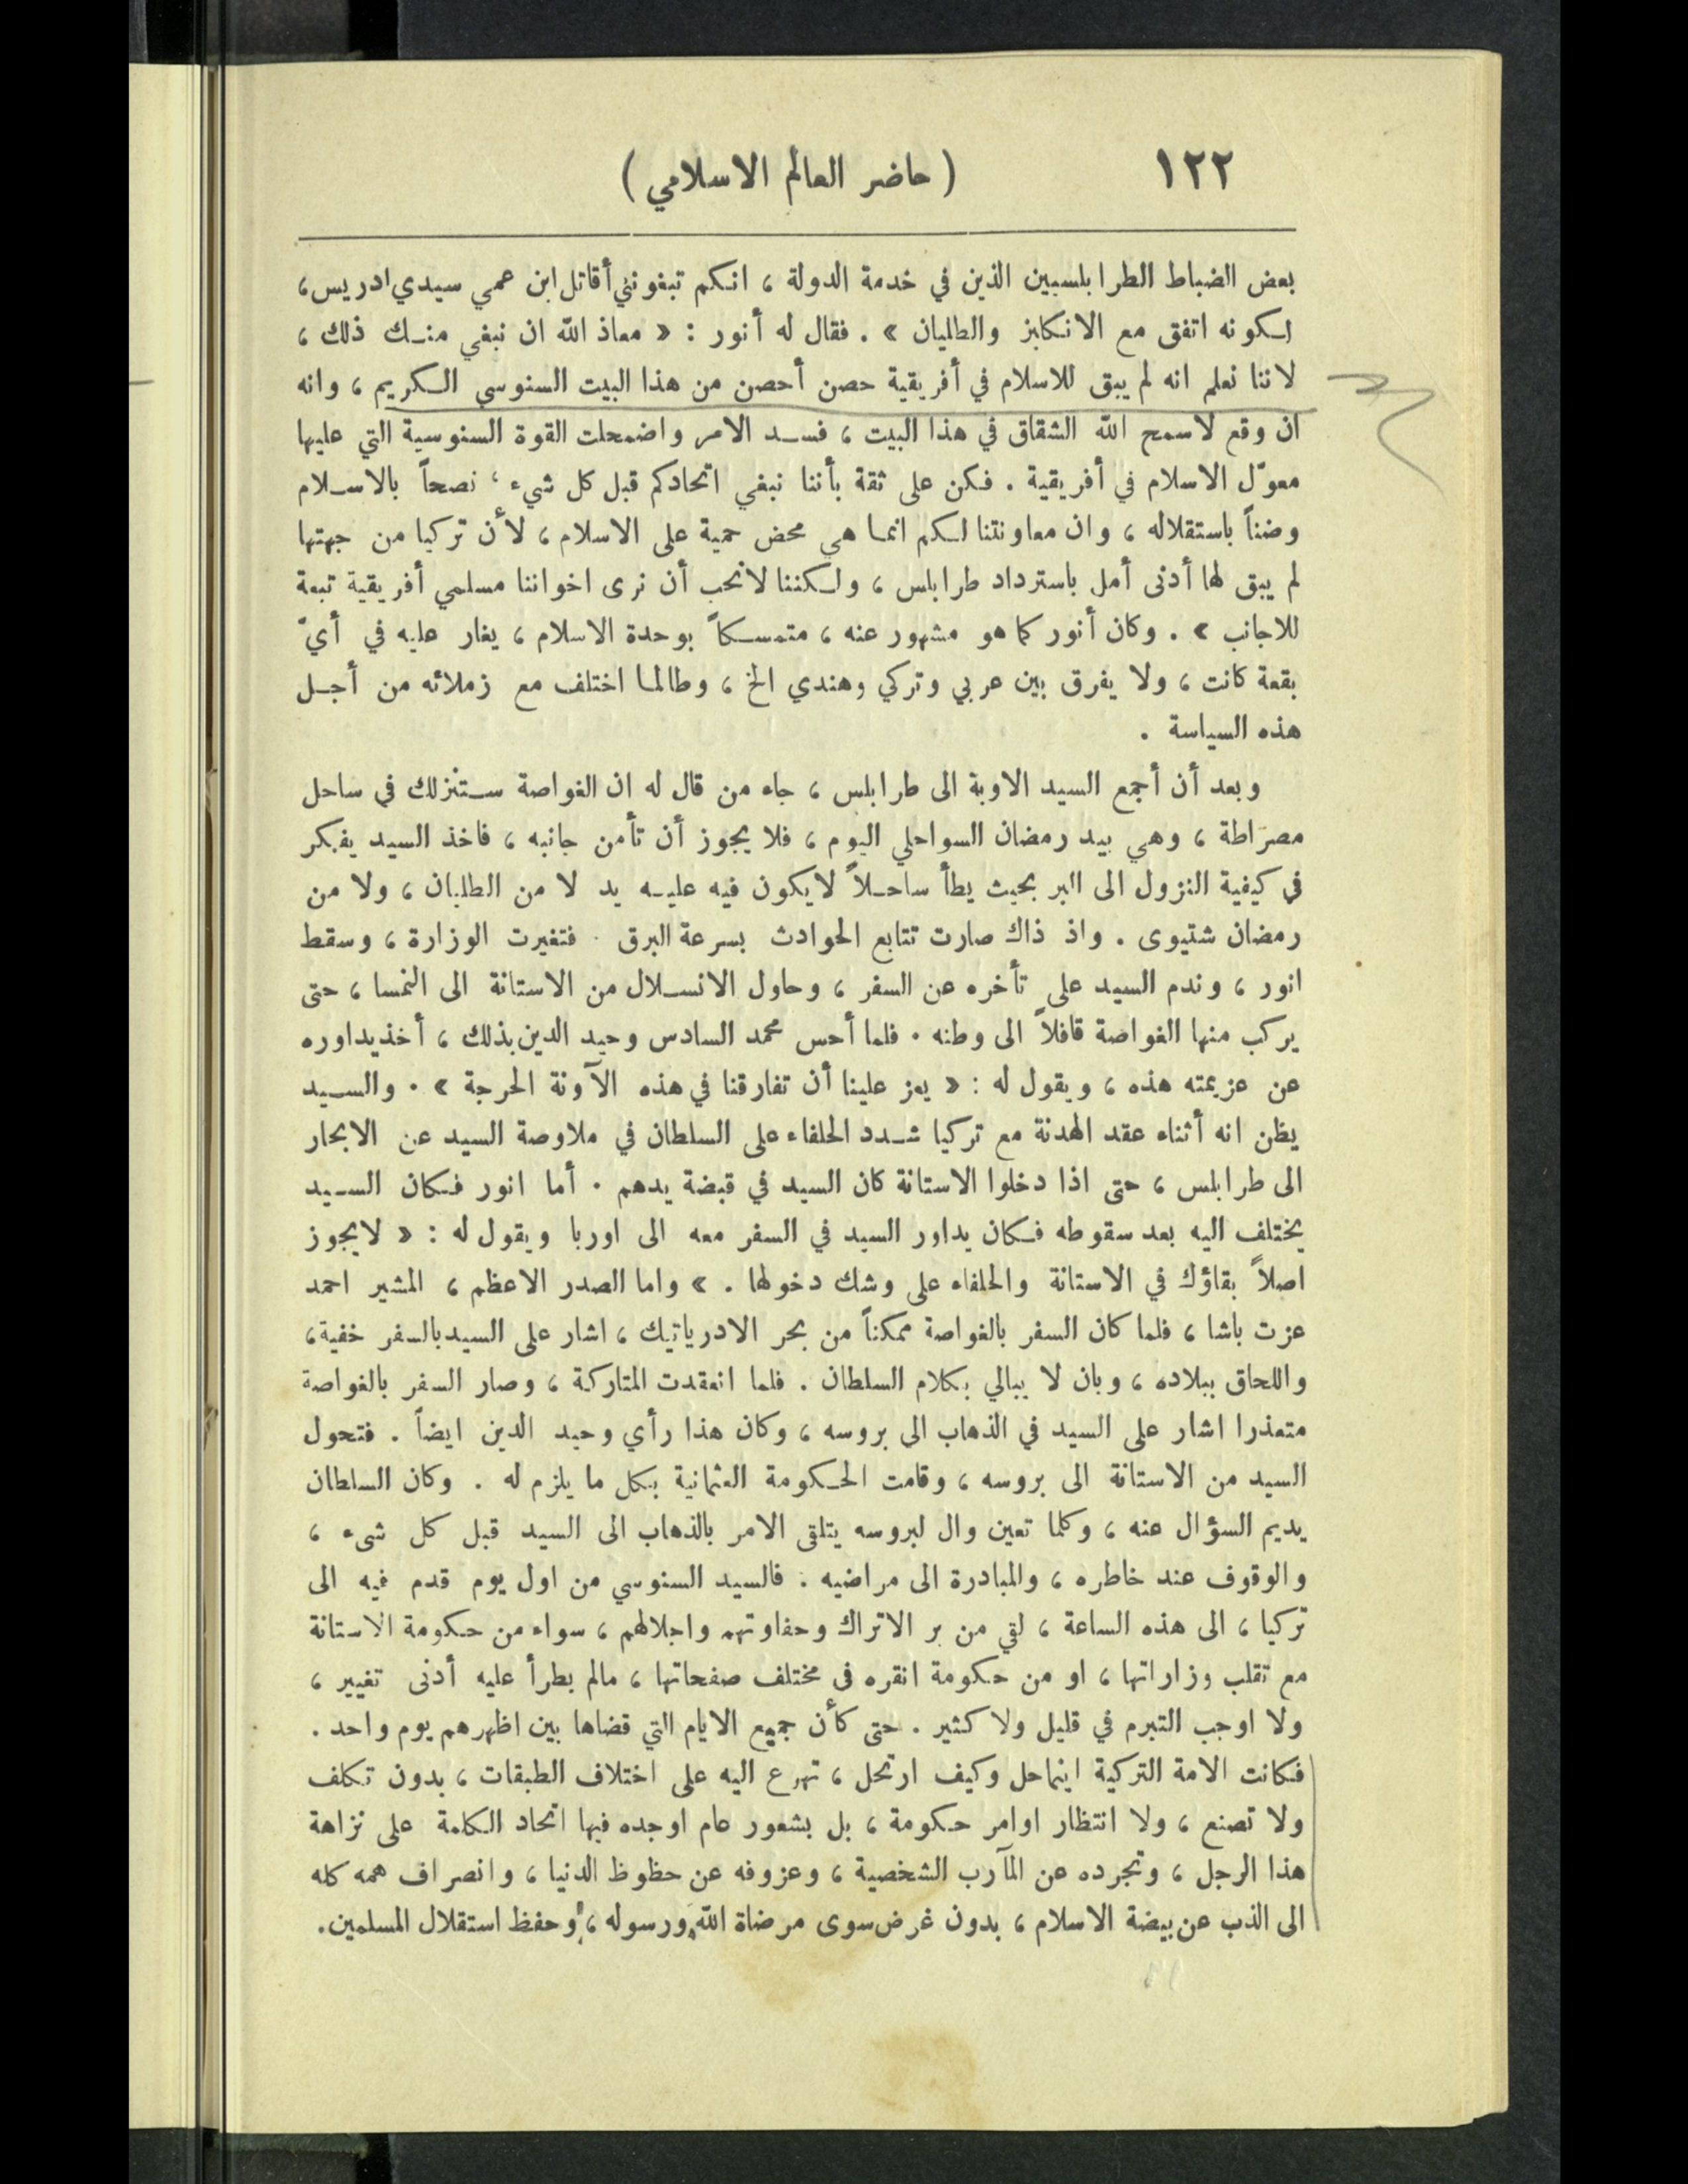 ١٢٢ ( حاضر العالم الاسلامي )
بعض الضباط الطرابلسيين الذين في خدمة الدولة ، انكم تبغونني أقاتل ابن عمي سيدي ادريس ،
لكونه اتفق مع الانكليز والطليان » . فقال له أنور : « معاذ الله ان نبغي منك ذلك ،
لاننا نعلم انه لم يبق للاسلام في أفريقية حصن أحصن من هذا البيت السنوسي الكريم ، وانه
ان وقع لاسمح الله الشقاق في هذا البيت ، فسد الامر واضمحلت القوة السنوسية التي عليها
معوّل الاسلام في أفريقية . فكن على ثقة بأننا نبغي اتحادكم قبل كل شيء ، نصحاً بالاسلام
وضناً باستقلاله ، وان معاونتنا لكم انما هي محض حمية على الاسلام ، لأن تركيا من جهتها
لم يبق لها أدنى أمل باسترداد طرابلس ، ولكننا لانحب أن نرى اخواننا مسلمي أفريقية تبعة
للاجانب » . وكان أنور كما هو مشهور عنه ، متمسكاً بوحدة الاسلام ، يغار عليه في أيّ
بقعة كانت ، ولا يفرق بين عربي وتركي وهندي الخ ، وطالما اختلف مع زملائه من أجل
هذه السياسة .
وبعد أن أجمع السيد الاوبة الى طرابلس ، جاء من قال له ان الغواصة ستنزلك في ساحل
مصرّاطة ، وهي بيد رمضان السواحلي اليوم ، فلا يجوز أن تأمن جانبه ، فاخذ السيد يفكر
في كيفية النزول الى البر بحيث يطأ ساحلاً لايكون فيه عليه يد لا من الطليان ، ولا من
رمضان شتيوى . واذ ذاك صارت تتابع الحوادث بسرعة البرق . فتغيرت الوزارة ، وسقط
انور ، وندم السيد على تأخره عن السفر ، وحاول الانسلال من الاستانة الى النمسا ، حتى
يركب منها الغواصة قافلاً الى وطنه . فلما أحس محمد السادس وحيد الدين بذلك ، أخذ يداوره
عن عزيمته هذه ، ويقول له : « يعز علينا أن تفارقنا في هذه الآونة الحرجة » . والسيد
يظن انه أثناء عقد الهدنة مع تركيا شدد الحلفاء على السلطان في ملاوصة السيد عن الابحار
الى طرابلس ، حتى اذا دخلوا الاستانة كان السيد في قبضة يدهم . أما انور فكان السيد
يختلف اليه بعد سقوطه فكان يداور السيد في السفر معه الى اوربا ويقول له : « لايجوز
اصلاً بقاؤك في الاستانة والحلفاء على وشك دخولها . » واما الصدر الاعظم ، المشير احمد
عزت باشا ، فلما كان السفر بالغواصة ممكناً من بحر الادرياتيك ، اشار على السيد بالسفر خفية ،
واللحاق ببلاده ، وبان لا يبالي بكلام السلطان . فلما انعقدت المتاركة ، وصار السفر بالغواصة
متعذرا اشار على السيد في الذهاب الى بروسه ، وكان هذا رأي وحيد الدين ايضاً . فتحول
السيد من الاستانة الى بروسه ، وقامت الحكومة العثمانية بكل ما يلزم له . وكان السلطان
يديم السؤال عنه ، وكلما تعين وال لبروسه يتلقى الامر بالذهاب الى السيد قبل كل شىء ،
والوقوف عند خاطره ، والمبادرة الى مراضيه . فالسيد السنوسي من اول يوم قدم فيه الى
تركيا ، الى هذه الساعة ، لقي من بر الاتراك وحفاوتهم واجلالهم ، سواء من حكومة الاستانة
مع تقلب وزاراتها ، او من حكومة انقره في مختلف صفحاتها ، مالم يطرأ عليه أدنى تغيير ،
ولا اوجب التبرم في قليل ولا كثير . حتى كأن جميع الايام التي قضاها بين اظهرهم يوم واحد .
فكانت الامة التركية اينماحل وكيف ارتحل ، تهرع اليه على اختلاف الطبقات ، بدون تكلف
ولا تصنع ، ولا انتظار اوامر حكومة ، بل بشعور عام اوجده فيها اتحاد الكلمة على نزاهة
هذا الرجل ، وتجرده عن المآرب الشخصية ، وعزوفه عن حظوظ الدنيا ، وانصراف همه كله
الى الذب عن بيضة الاسلام ، بدون غرض سوى مرضاة الله ورسوله ، وحفظ استقلال المسلمين .